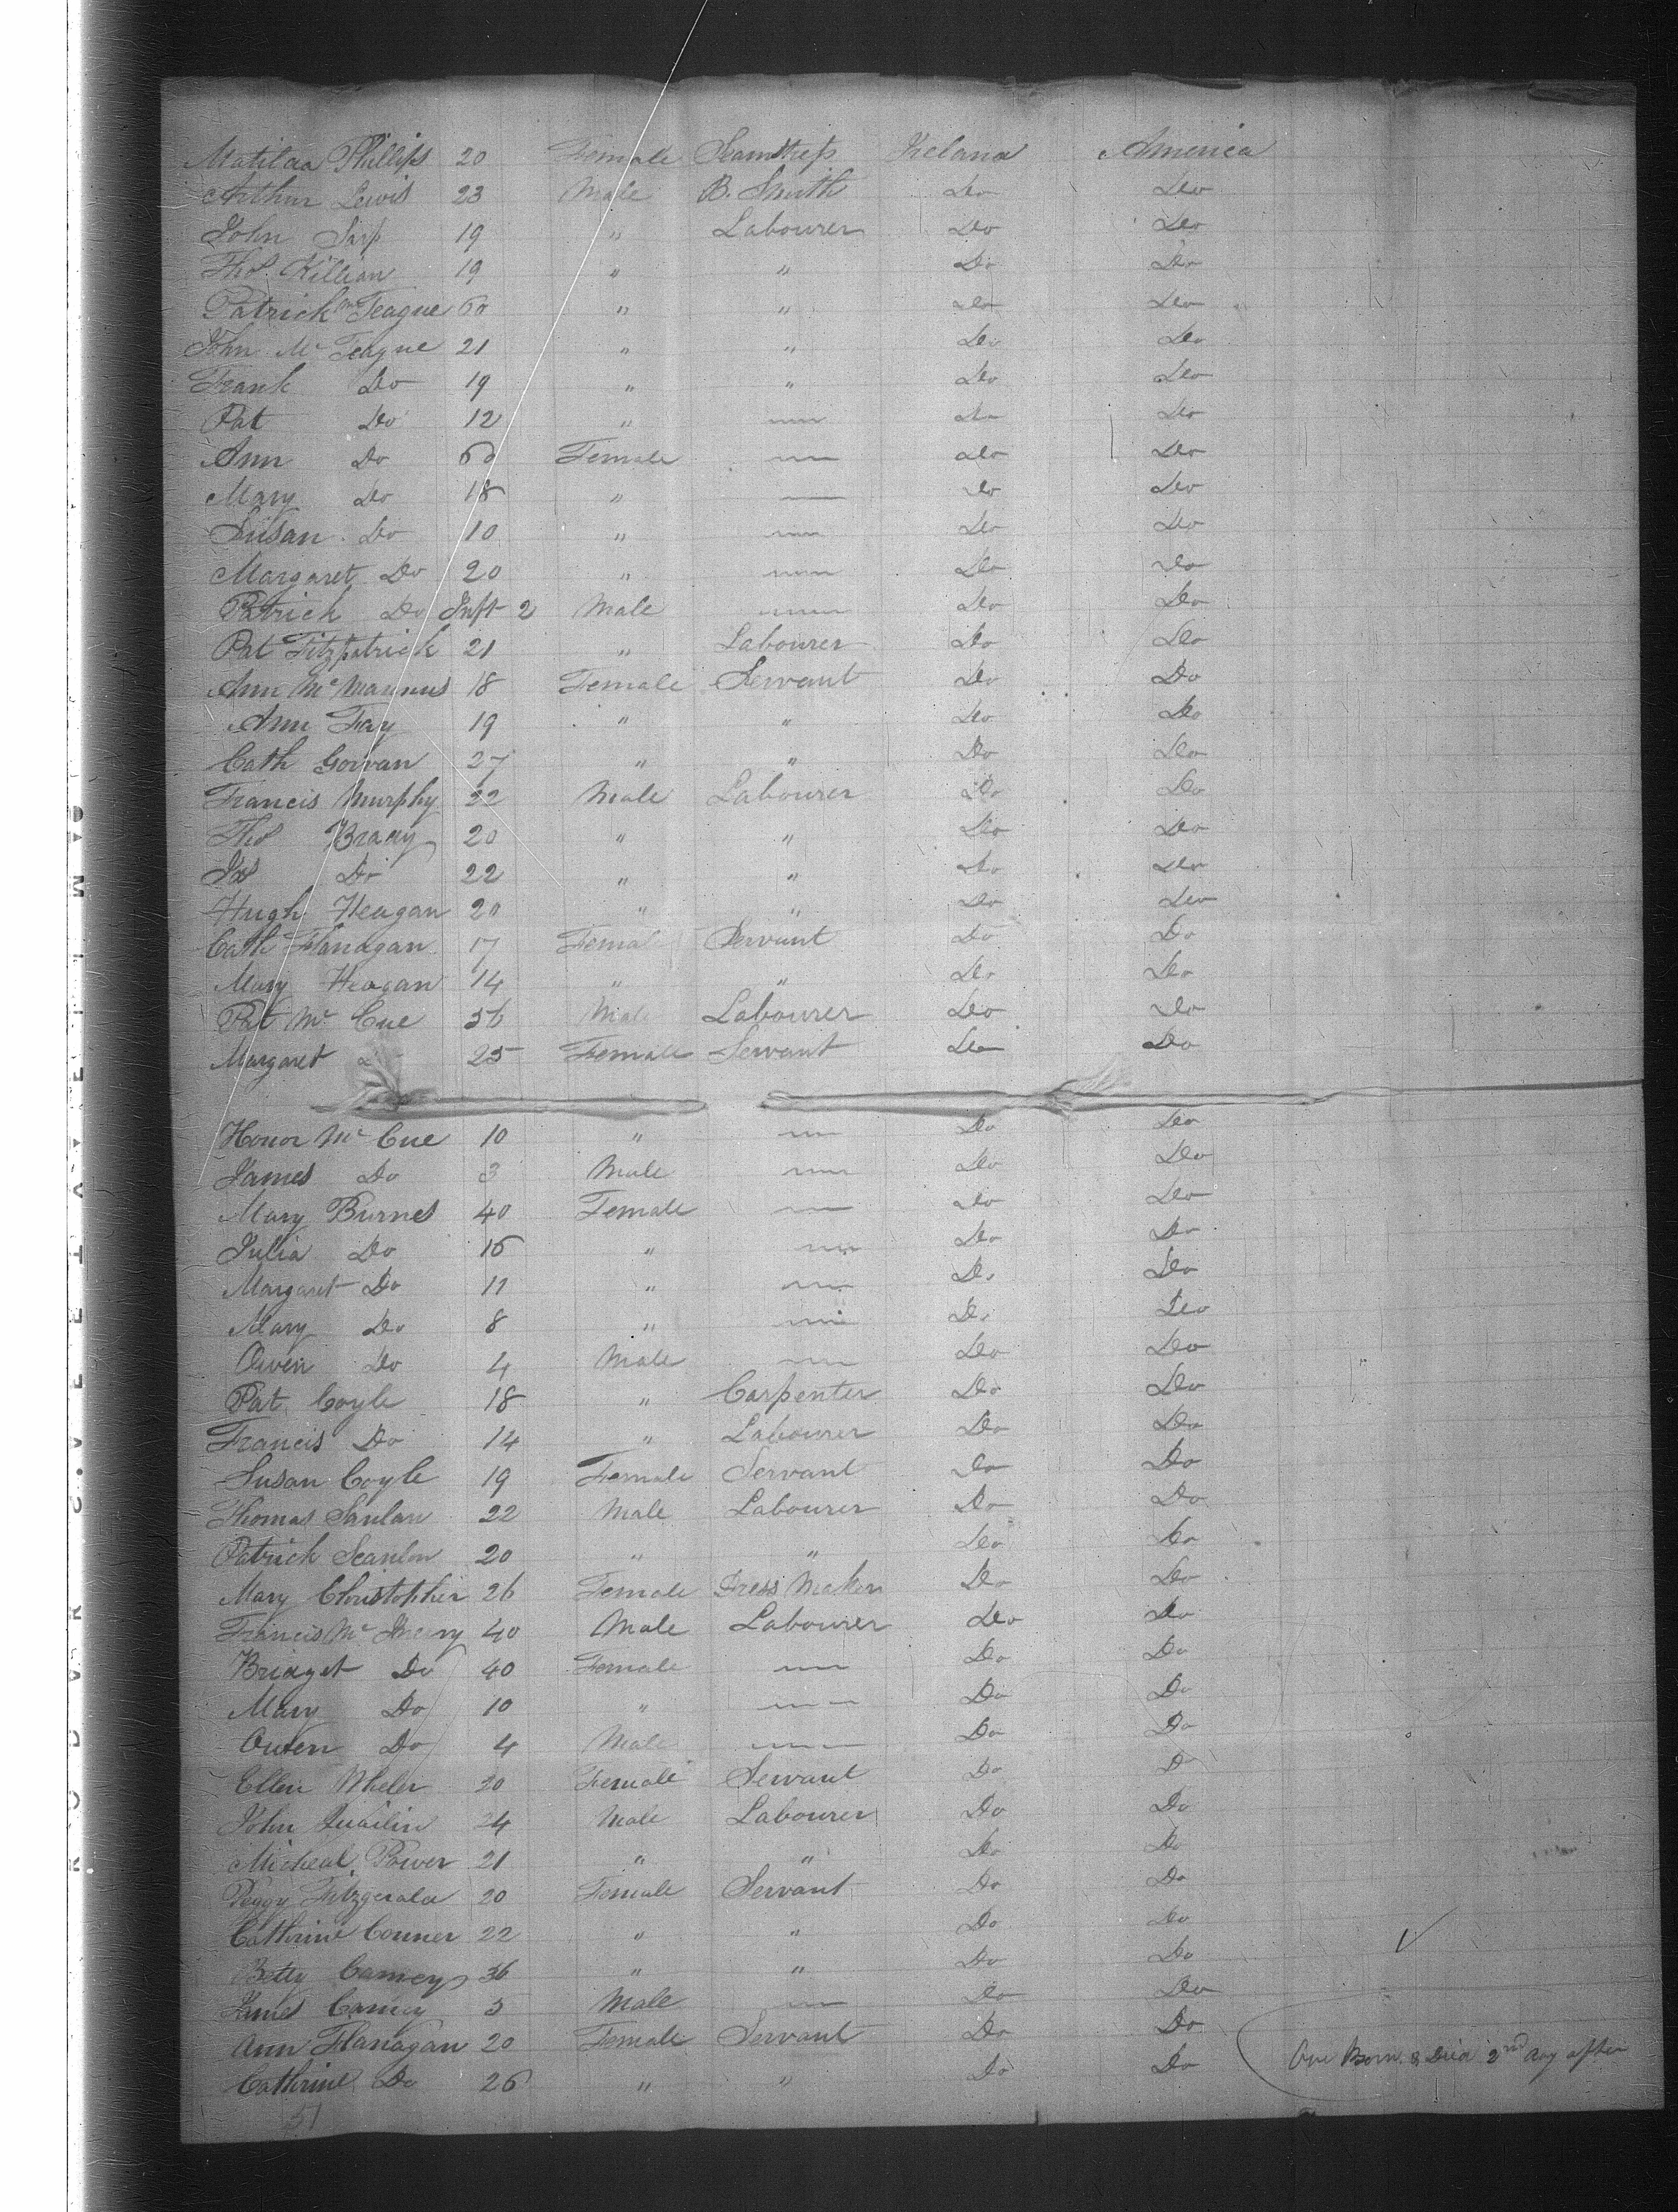 Matilda Phillips 20 Female Seamstress Ireland America
Arthur Lewis 23 Male B. Smith Do Do
John 19 " Labourer Do Do
Thos Killian 19 " " Do Do
Patrick McTeague 60 " " Do Do
John McTeague 21 " " Do Do
Frank Do 19 " " Do Do
Pat Do 12 " — Do Do
Ann Do 60 Female — Do Do
Mary Do 18 " — Do Do
Susan Do 10 " — Do Do
Margaret Do 20 " — Do Do
Patrick Do Inft 2 Male — Do Do
Pat Fitzpatrick 21 " Labourer Do Do
Ann McMannus 18 Female Servant Do Do
Ann Fay 19 " " Do Do
Cath Gowan 27 " " Do Do
Francis Murphy 22 Male Labourer Do Do
Thos Brady 20 " " Do Do
Jas Do 22 " " Do Do
Hugh Heagan 20 " " Do Do
Cath Flanagan 17 Female Servant Do Do
Mary Heagan 14 " " Do Do
Pat McCue 36 Male Labourer Do Do
Margaret Do 25 Female Servant Do Do
Honor McCue 10 " — Do Do
James Do 3 Male — Do Do
Mary Burnes 40 Female — Do Do
Julia Do 15 " — Do Do
Margaret Do 11 " — Do Do
Mary Do 8 " — Do Do
Owen Do 4 Male — Do Do
Pat Coyle 18 " Carpenter Do Do
Francis Do 14 " Labourer Do Do
Susan Coyle 19 Female Servant Do Do
Thomas Sanlan 22 Male Labourer Do Do
Patrick Scanlon 20 " " Do Do
Mary Christopher 26 Female Dress Maker Do Do
Francis Mc 40 Male Labourer Do Do
Bridget Do 40 Female — Do Do
Mary Do 10 " — Do Do
Owen Do 4 Male — Do Do
Ellen Wheler 20 Female Servant Do Do
John Quailin 24 Male Labourer Do Do
Micheal Power 21 " " Do Do
Peggy Fitzgerald 20 Female Servant Do Do
Cathrine Conner 22 " " Do Do
Betty Camey 36 " " Do Do
James Camey 5 Male — Do Do
Ann Flanagan 20 Female Servant Do Do
Cathrine Do 26 " " Do Do One Born & Died 2nd day after
51